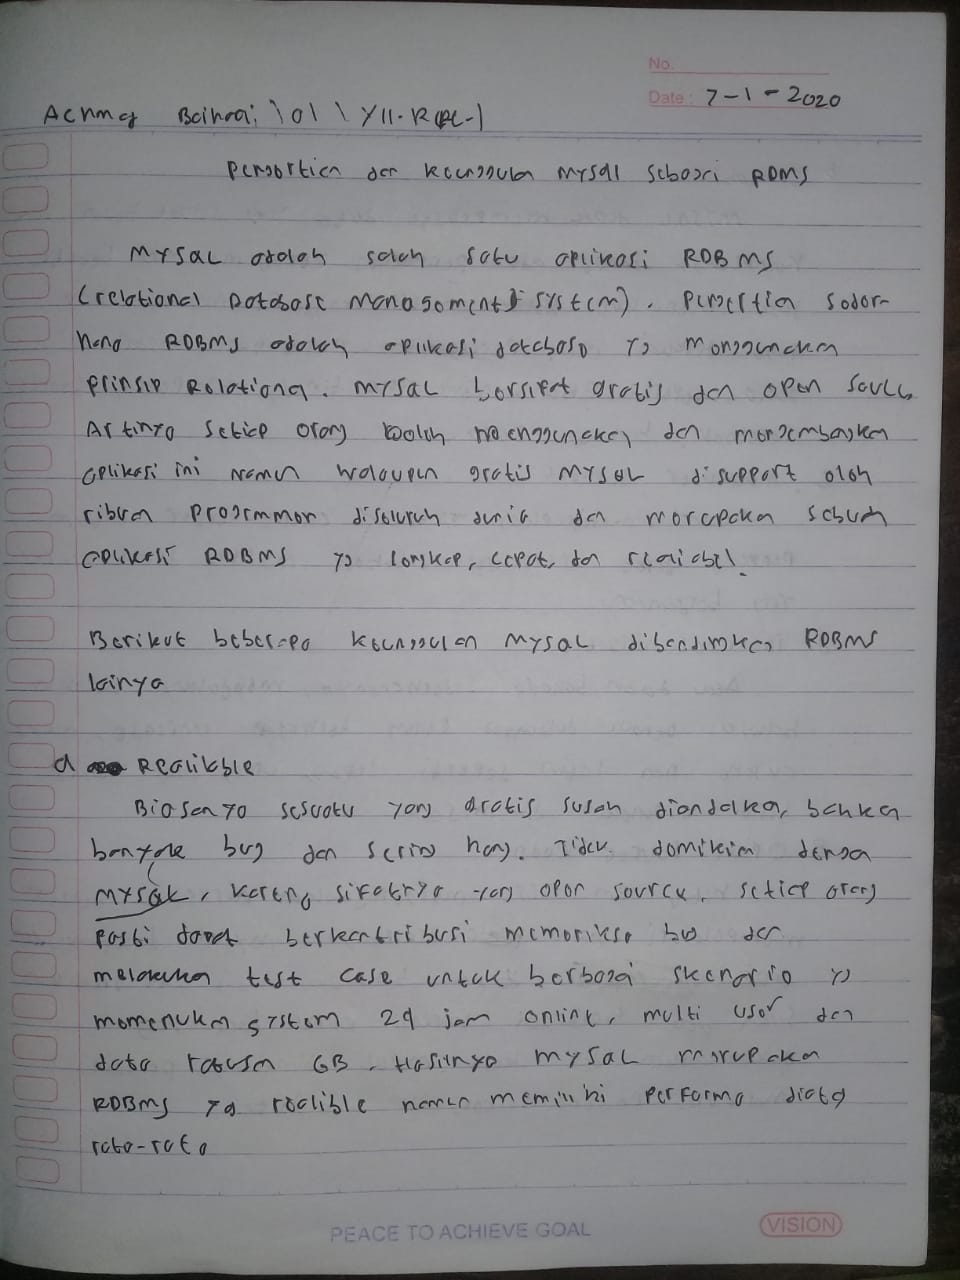 No.
Date : 7-1-2020
Achmad \ 01 \ XII-RPL-1
Pengertian dan Keunggulan MySQL sebagai RDMS
MYSQL adalah salah satu aplikasi RDBMS
(relational Database Management System). Pengertian seder-
hana RDBMS adalah aplikasi database yg menggunakan
prinsip Relational. MYSQL bersifat gratis dan open source
Artinya setiap orang boleh menggunakan dan mengembangkan
aplikasi ini namun walaupun gratis MYSQL disupport oleh
ribuan programmer diseluruh dunia dan merupakan sebuah
aplikasi RDBMS yg lengkap, cepat, dan
Berikut beberapa keunggulan MYSQL dibandingkan RDBMS
lainya
a Realikble
Biasanya sesuatu yang gratis susah diandalkan, bahkan
banyak bug dan sering hang. Tidak demikian dengan
MYSQL, karena sifatnya yang open source, setiap orang
pasti dapat berkontribusi memeriksa bug dan
melakukan test case untuk berbagai skenario yg
memerlukan system 24 jam online, multi user dan
data ratusan GB. Hasilnya MYSQL merupakan
RDBMS yg realible namun memiliki performa diatas
rata-rata
PEACE TO ACHIEVE GOAL
VISION